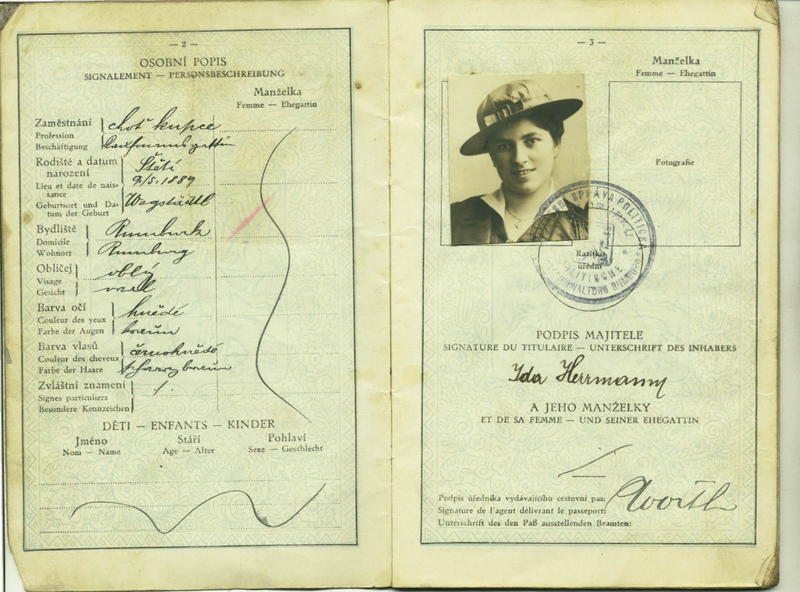 — 2 —
OSOBNÍ POPIS
SIGNALEMENT — PERSONSBESCHREIBUNG
Manželka
Femme — Ehegattin
Zaměstnání
Profession
Beschäftigung
choť kupce
Kaufmannsgattin
Rodiště a datum
narození
Lieu et date de nais-
sance
Geburtsort und Da-
tum der Geburt
Štětí
9/5. 1889
Wegstädtl
Bydliště
Domicile
Wohnort
Rumburk
Rumburg
Obličej
Visage
Gesicht
oblý
oval
Barva očí
Couleur des yeux
Farbe der Augen
hnědé
braun
Barva vlasů
Couleur des cheveux
Farbe der Haare
černohnědé
schwarzbraun
Zvláštní znamení
Signes particuliers
Besondere Kennzeichen
DĚTI — ENFANTS — KINDER
Jméno
Nom — Name
Stáří
Age — Alter
Pohlaví
Sexe — Geschlecht
— 3 —
Manželka
Femme — Ehegattin
Fotografie
SPRÁVA POLITICKÁ
Razítko
úřední
POLITISCHE
PODPIS MAJITELE
SIGNATURE DU TITULAIRE — UNTERSCHRIFT DES INHABERS
Ida Herrmann
A JEHO MANŽELKY
ET DE SA FEMME — UND SEINER EHEGATTIN
Podpis úředníka vydávajícího cestovní pas:
Signature de l'agent délivrant le passeport:
Unterschrift des den Paß ausstellenden Beamten: